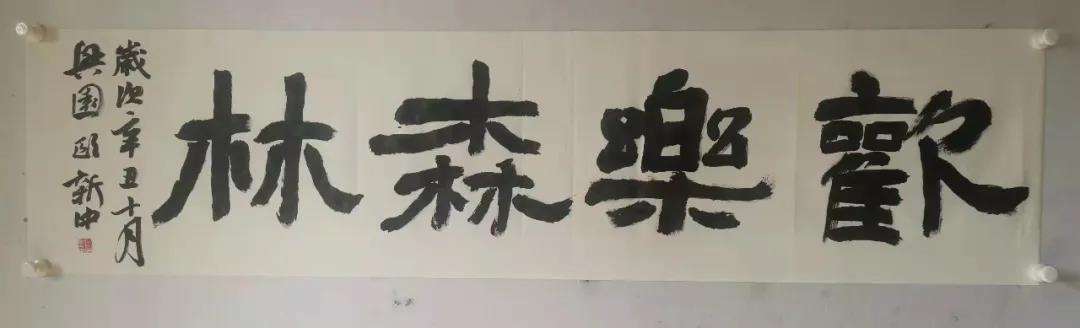 歡樂森林
歲次辛丑十月
興園 新中